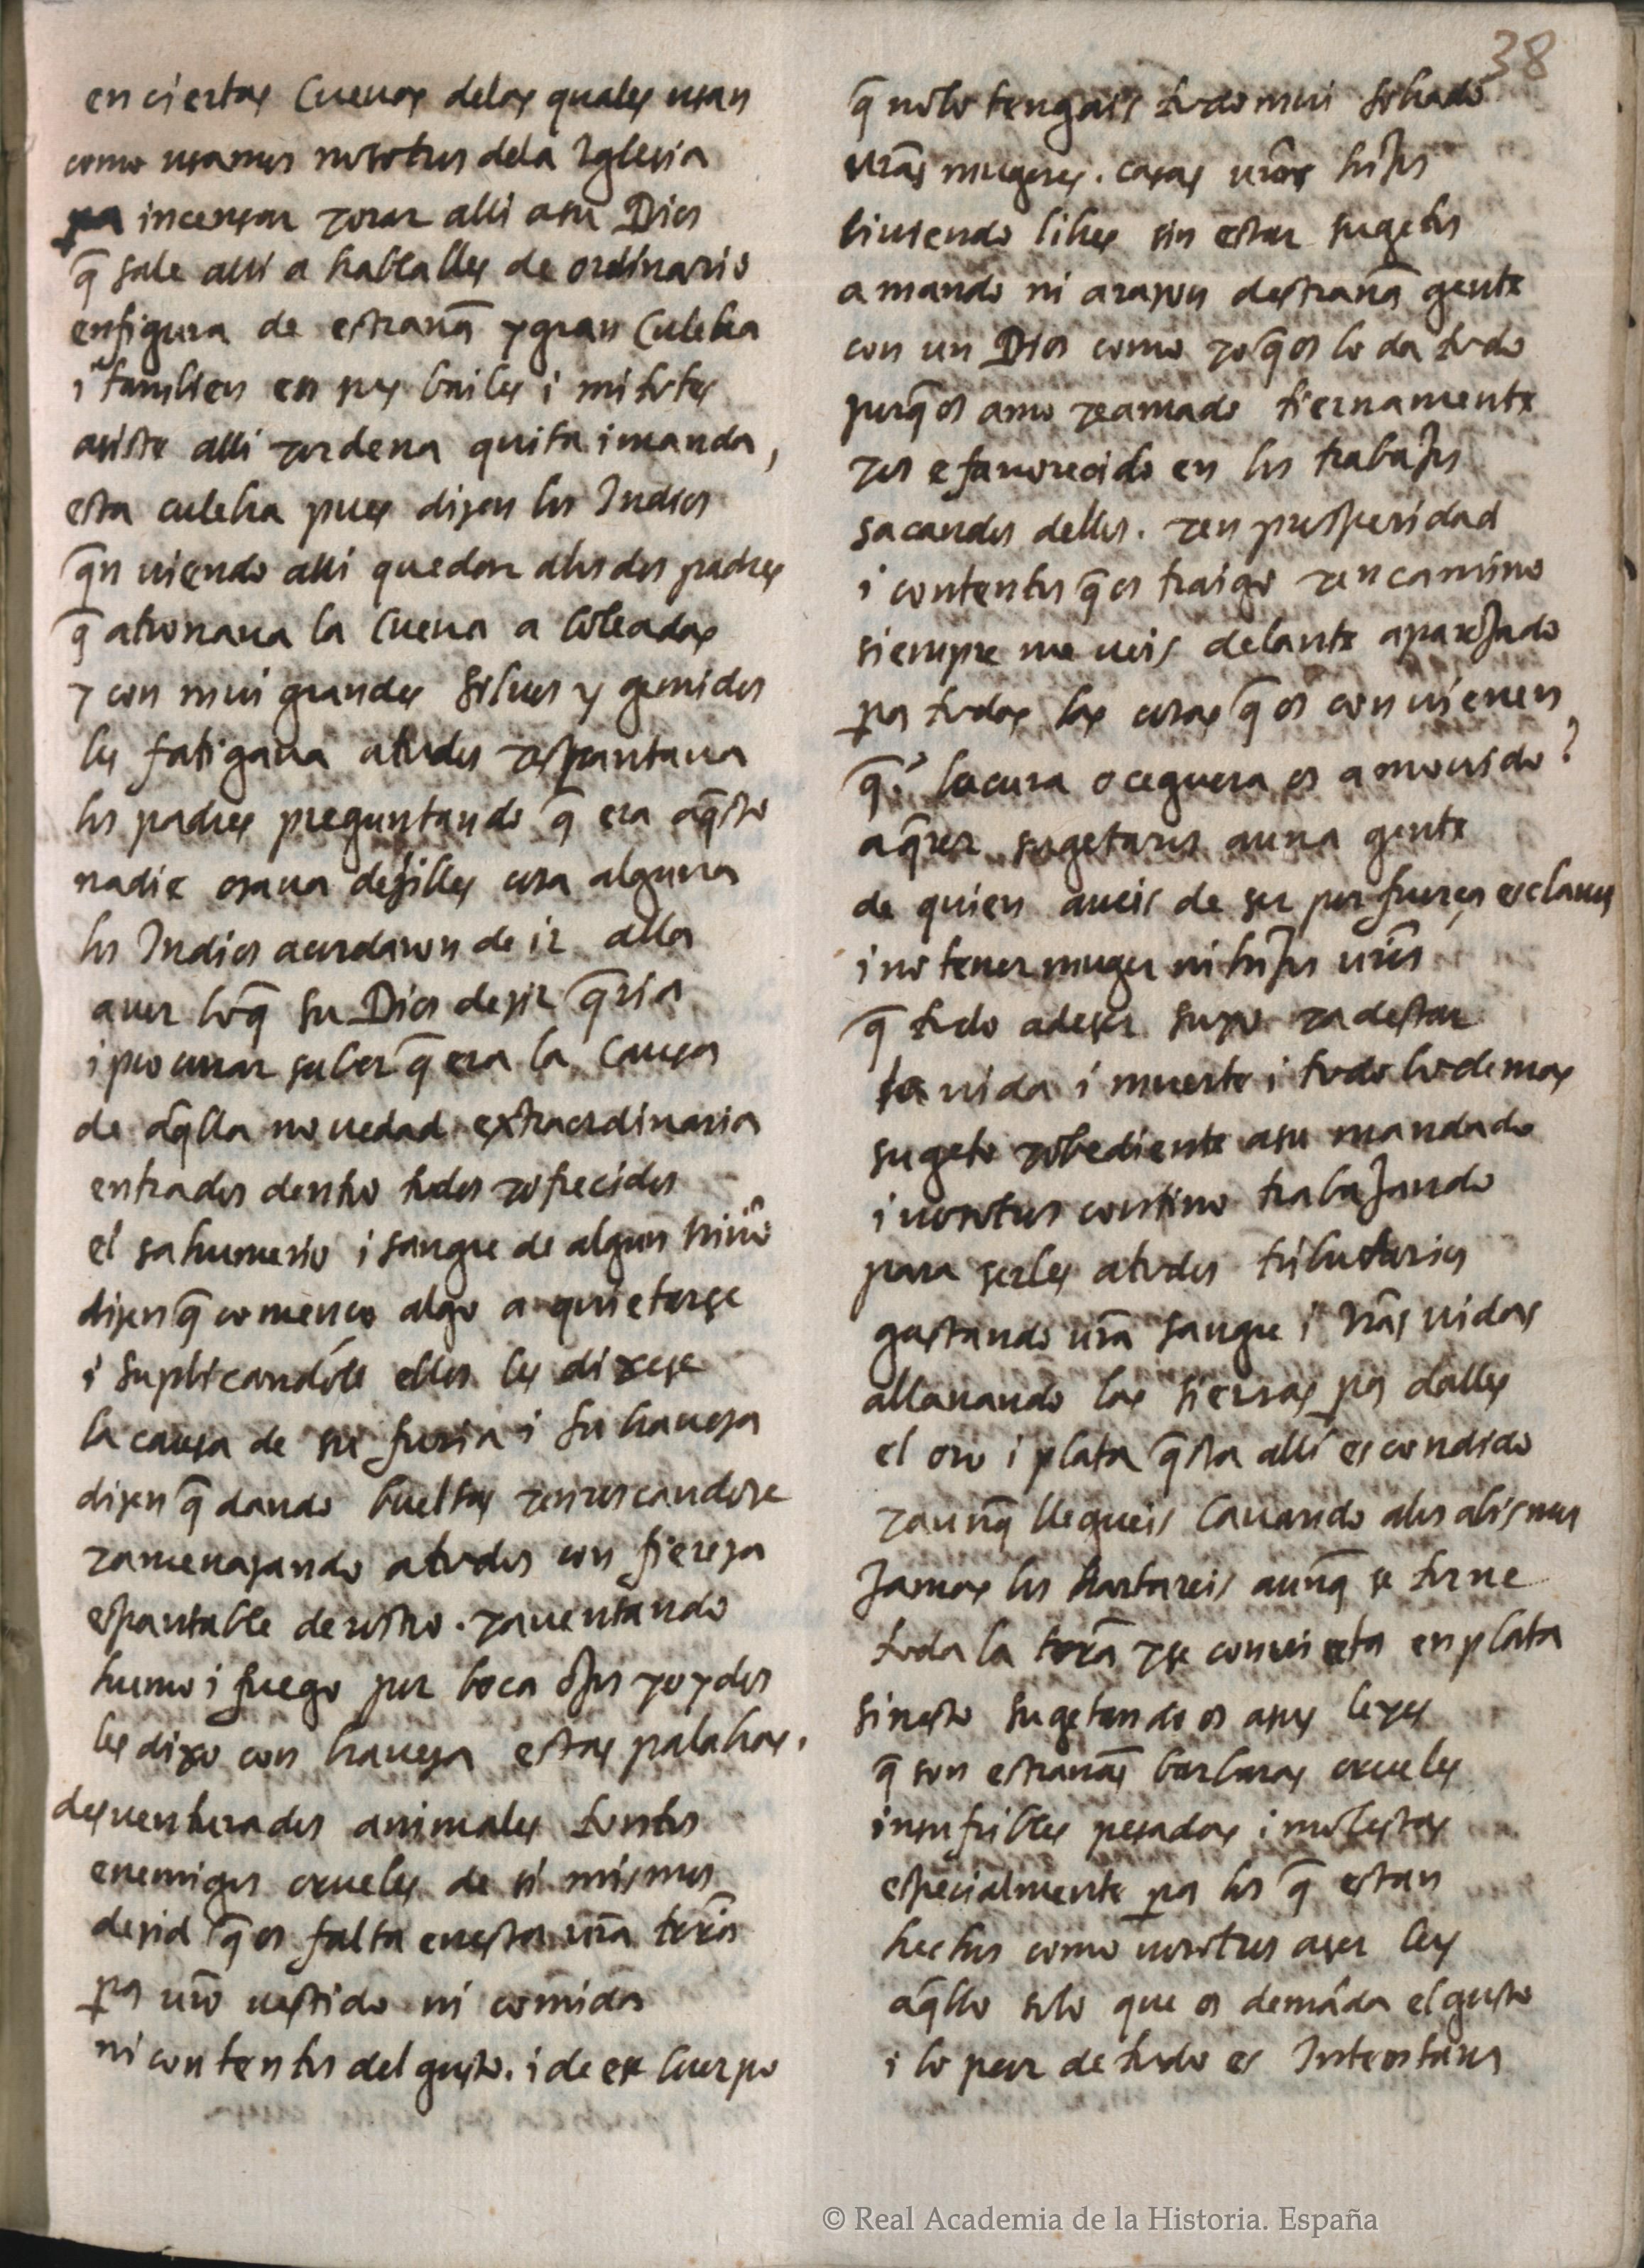 en ciertas Cueuas delas quales usan
como usamos nosotros dela Iglesia
pa incensar y orar alli a su Dios
q̄ sale alli a hablalles de ordinario
en figura de estraña y gran Culebra
i tambien en sus bailes i mitotes
asiste alli y ordena quita i manda,
esta culebra pues dizen los Indios
q̄n uiendo alli quedar a los dos padres
q̄ atronaua la Cueua a coleadas
y con mui grandes siluos y gemidos
les fatigaua a todos y espantaua
los padres preguntando q̄ era aq̄sto
nadie osaua dezilles cosa alguna
los Indios acordaron de ir alla
a uer loq̄ su Dios dezir q̄ria
i procurar saber q̄ era la Causa
de aq̄lla nouedad extraordinaria
entrados dentro todos y ofrecidos
el sahumerio i sangre de algun niño
dizen q̄ comenco algo a quietarse
i suplicandole ellos les dixese
la causa de su furia i su braueza
dizen q̄ dando bueltas y enroscandose
y amenazando a todos con fiereza
espantable de rostro. y auentando
humo i fuego por boca ojos y oydos
les dixo con braueza estas palabras.
desuenturados animales tontos
enemigos crueles de si mismos
dezid q̄ os falta en esta ur̄a terr̄a
pa ur̄o uestido ni comida
ni contentos del gusto. i de ese Cuerpo
38
q̄ nolo tengais todo mui sobrado
ur̄as mugeres. casas ur̄os hijos
biuiendo libres sin estar sugetos
a mando ni a razon destrañā gente
con un Dios como yo q̄ os lo da todo
porq̄ os amo y e amado tiernamente
y os e fauorecido en los trabajos
sacandos dellos. y en prosperidad
i contentos q̄ os traigo y encamino
siempre me ueis delante aparejado
pa todas las cosas q̄ os conuienen
q̄? locura o ceguera os a mouido?
a q̄rer sugetaros a una gente
de quien aueis de ser por fuerça esclauos
i no tener muger ni hijos ur̄os
q̄ todo a de ser suyo y a de star
la uida i muerte i todo lo demas
sugeto y obediente a su mandado
i uosotros contino trabajando
para serles a todos tributarios
gastando ur̄a sangre i ur̄as uidas
allanando las sierras pa dalles
el oro i plata q̄sta alli escondido
y aunq̄ llegueis Cauando a los abismos
Jamas los hartareis aunq̄ se torne
toda la terr̄a y se conuierta en plata
sin esto sugetandoos a sus leyes
q̄ son estrañas barbaras crueles
insufribles pesadas i molestas
especialmente pa los q̄ estan
hechos como uosotros a ser ley
aq̄llo solo que os demāda el gusto
i lo peor de todo es Intentaros
© Real Academia de la Historia. España